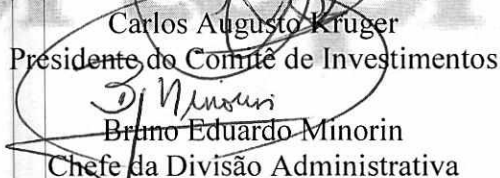 Carlos Augusto Kruger
Presidente do Comitê de Investimentos
Bruno Eduardo Minorin
Chefe da Divisão Administrativa